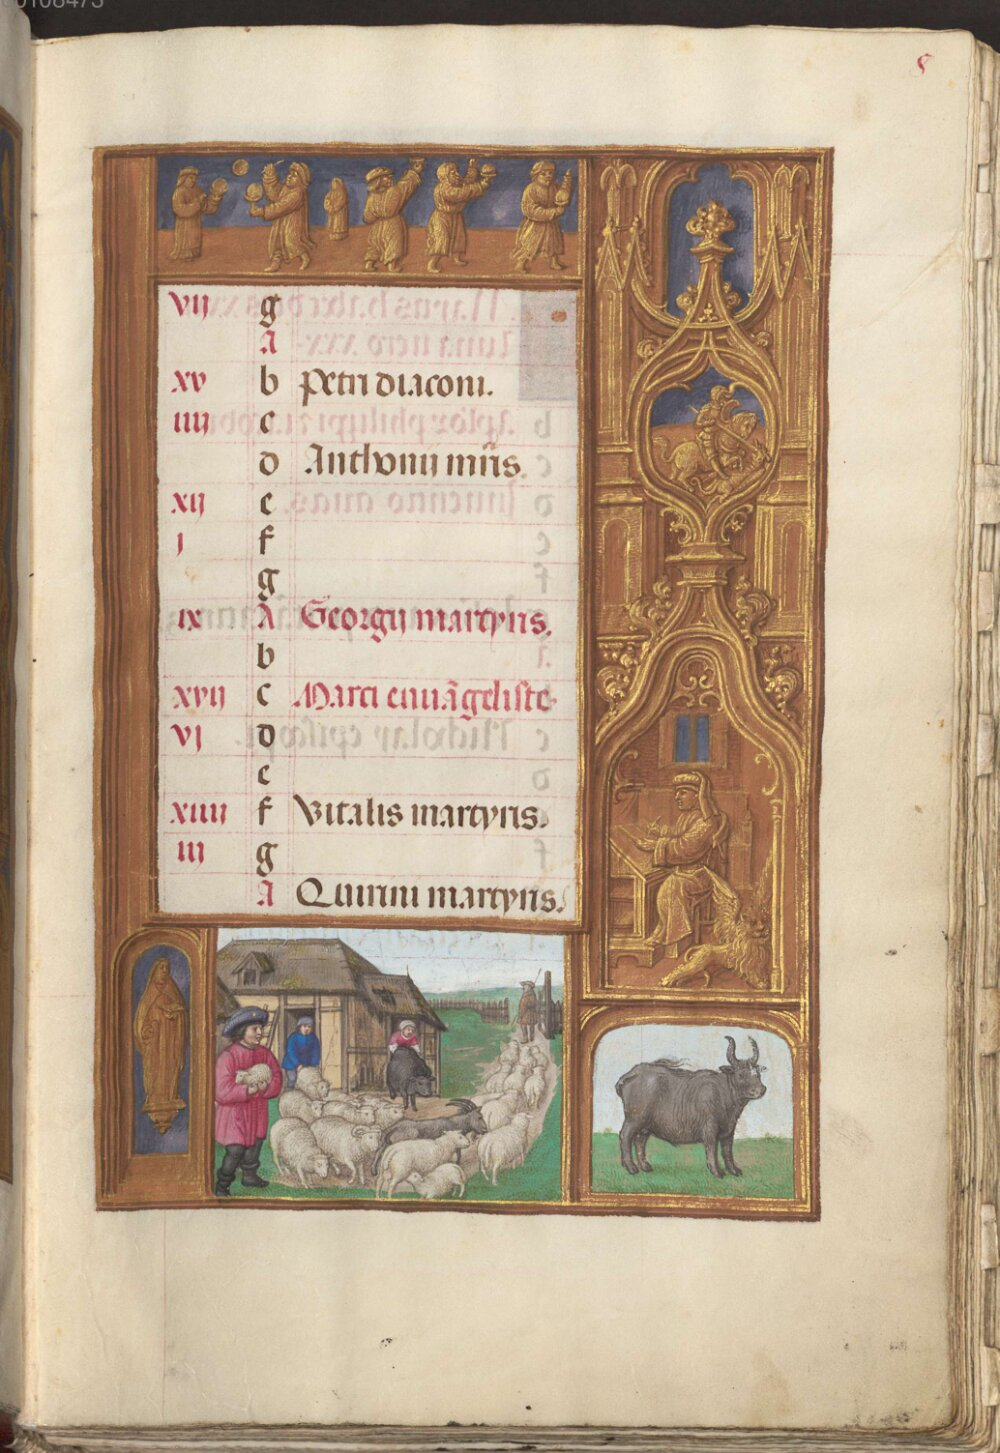 00108473
5
vij g
A
xv b Petri diaconi.
iiij c
d Anthonij mr̃is.
xij e
j f
g
ix A Georgij martyris.
b
xvij c Marci euuãgeliste.
vj d
e
xiiij f Vitalis martyris.
iij g
A Quirini martyris.